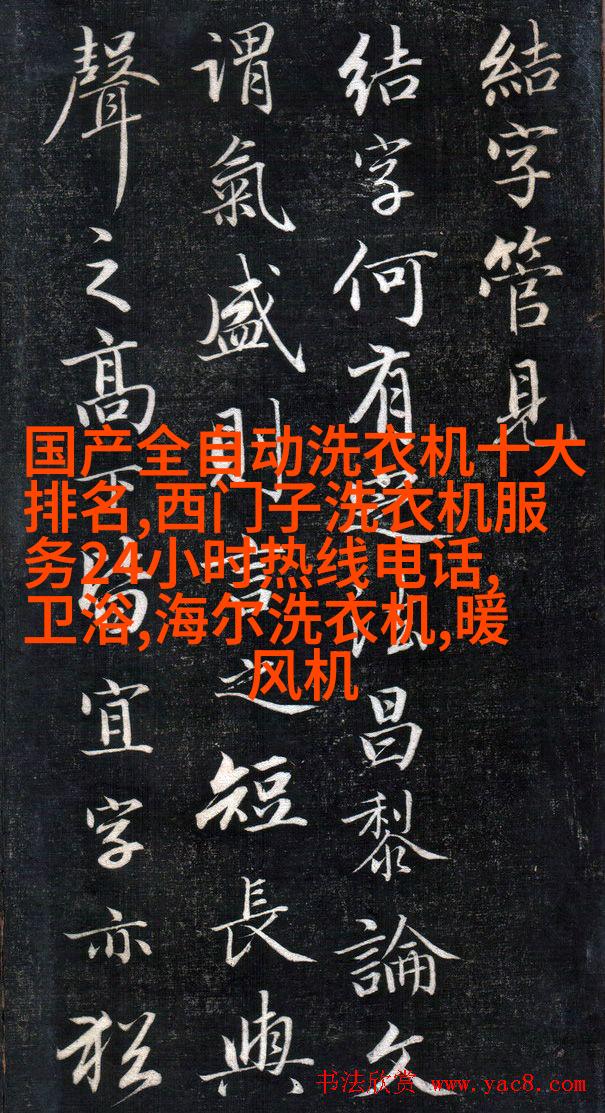 結字管見
結字何有法昌黎論文
謂氣盛則言之短長與
聲之高下皆宜字亦猶
国产全自动洗衣机十大
排名,西门子洗衣机服
务24小时热线电话,
卫浴,海尔洗衣机,暖
风机
书法欣赏 www.yac8.com